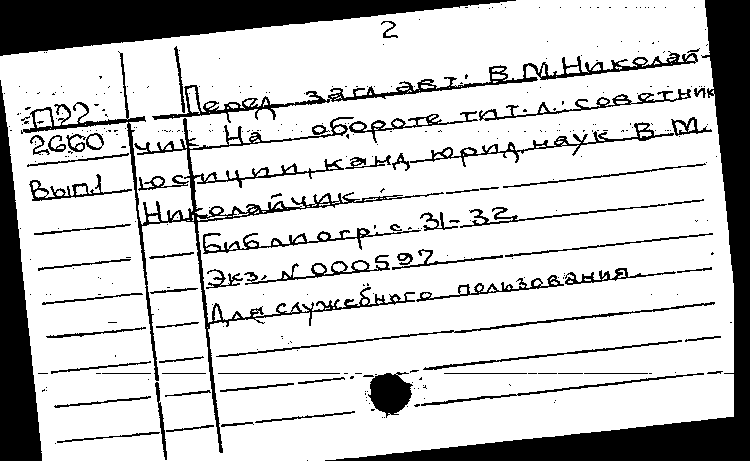 2
П22 Перед загл. авт.: В.М.Николай-
2660 чик. На обороте тит. л.: советник
Вып.1 юстиции, канд. юрид. наук В. М.
Николайчик.
Библиогр: с. 31-32.
Экз. N 000597.
Для служебного пользования.